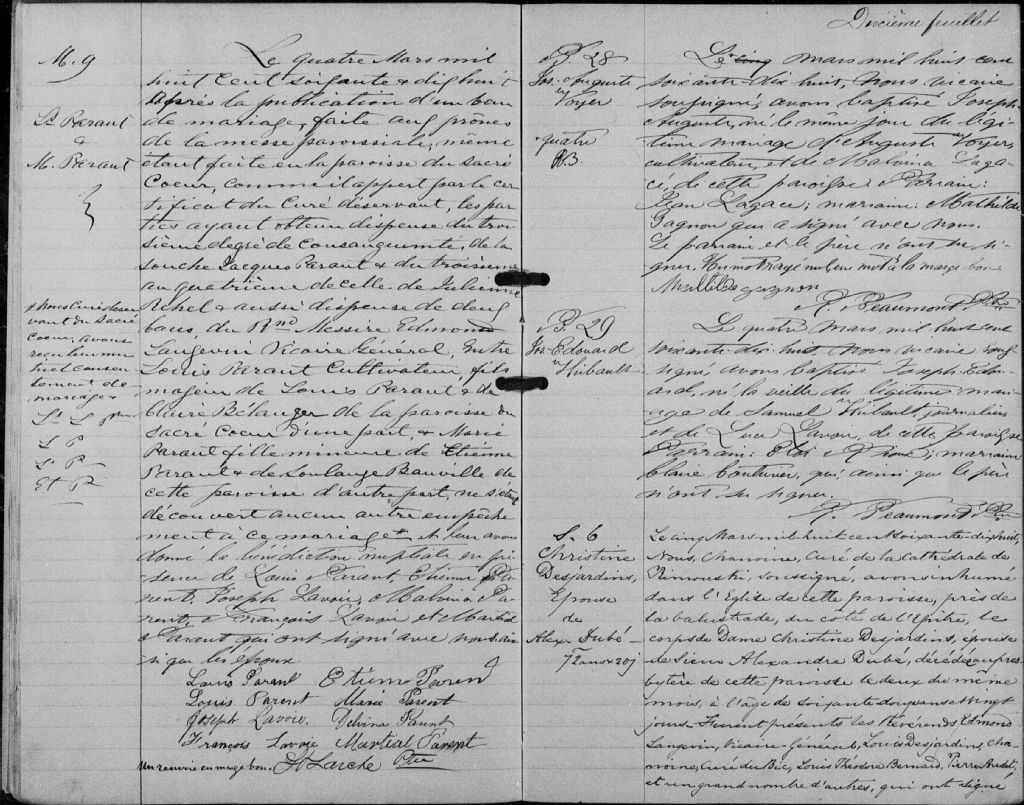 M. 9
Ls Paraut
&
M. Paraut
Le quatre Mars mil
huit cent soixante & dix huit
Après la publication d'un ban
de mariage, faite aux prônes
de la messe paroissiale, même
étant faite en la paroisse du Sacré
Coeur, comme il appert par le cer
tificat du Curé désservant, les par
ties ayant obtenu dispense du troi
sième degré de Consanguinité, de la
souche Jacques Paraut & du troisième
au quatrième de celle de
Rehel & aussi dispense de deux
bans, du Rnd Messire Edmond
Langevin Vicaire Général, Entre
Louis Paraut Cultivateur, fils
majeur de Louis Paraut & de
Claire Bélanger de la paroisse du
Sacré Coeur d'une part, & Marie
Paraut fille mineure de Etienne
Paraut & de Soulange Banville de
cette paroisse d'autre part, ne s'étant
découvert aucun autre empêche
ment à ce mariage # & leur avons
donné la bénédiction nuptiale en pré
sence de Louis Parant, Etienne Pa
rent, Joseph Lavoie, Malvina Pa
rent, François Lavoie et Martial
Parant qui ont signé avec nous ain
si que les époux
# Nous Curé desser
vant du Sacré
Coeur, avons
reçu leur mu
tuel consen
tement de
mariage &
L. P
L. P
Et P
Louis Parent Etienne Parent
Louis Parent Marie Parent
Joseph Lavoie. Delvina Parent
François Lavoie Martial Parent
Un renvoie en marge bon. Larche Ptre
Dixième feuillet
B. 28
Jos. Auguste
Voyer
quatre
R.B
Le cinq mars mil huit cent
soixante dix huit, Nous vicaire
soussigné, avons baptisé Joseph
Auguste, né le même jour du légi-
time mariage d'Auguste Voyer,
cultivateur, et de Malvina Laga-
cé, de cette paroisse. Parrain:
Jean Lagacé; marraine: Mathilde
Gagnon qui a signé avec nous.
Le parrain et le père n'ont su si-
gner. Un mot rayé nul, un mot à la marge bon
Mathilde gagnon
R. Beaumont Ptre
B. 29
Jos. Edouard
Thibault
Le quatre mars, mil huit cent
soixante dix huit, Nous vicaire sous
signé, avons baptisé Joseph Edou-
ard, né la veille du légitime mari-
age de Samuel Thibault, journalier
et de Luce Lavoie, de cette paroisse
Parrain: Eloi; marraine
Claire Couturier, qui ainsi que le père
n'ont su signer.
R. Beaumont Ptre
S. 6
Christine
Desjardins,
Epouse
de
Alexe Dubé
72 ans & 20 j
Le cinq Mars mil huit cent soixante dix huit,
Nous, Chanoine, Curé de la Cathédrale de
Rimouski, soussigné, avons inhumé
dans l'Eglise de cette paroisse, près de
la balustrade, du côté de l'Epître, le
corps de Dame Christine Desjardins, épouse
de Sieur Alexandre Dubé, décédée au pres-
bytère de cette paroisse le deux du même
mois, à l'âge de soixante douze ans & vingt
jours. Furent présents les Révérends Edmond
Langevin, Vicaire-Général, Louis Desjardins, Cha-
noine, Curé du Bic, Louis Théodore Bernard, Pierre Audet,
et un grand nombre d'autres, qui ont signé